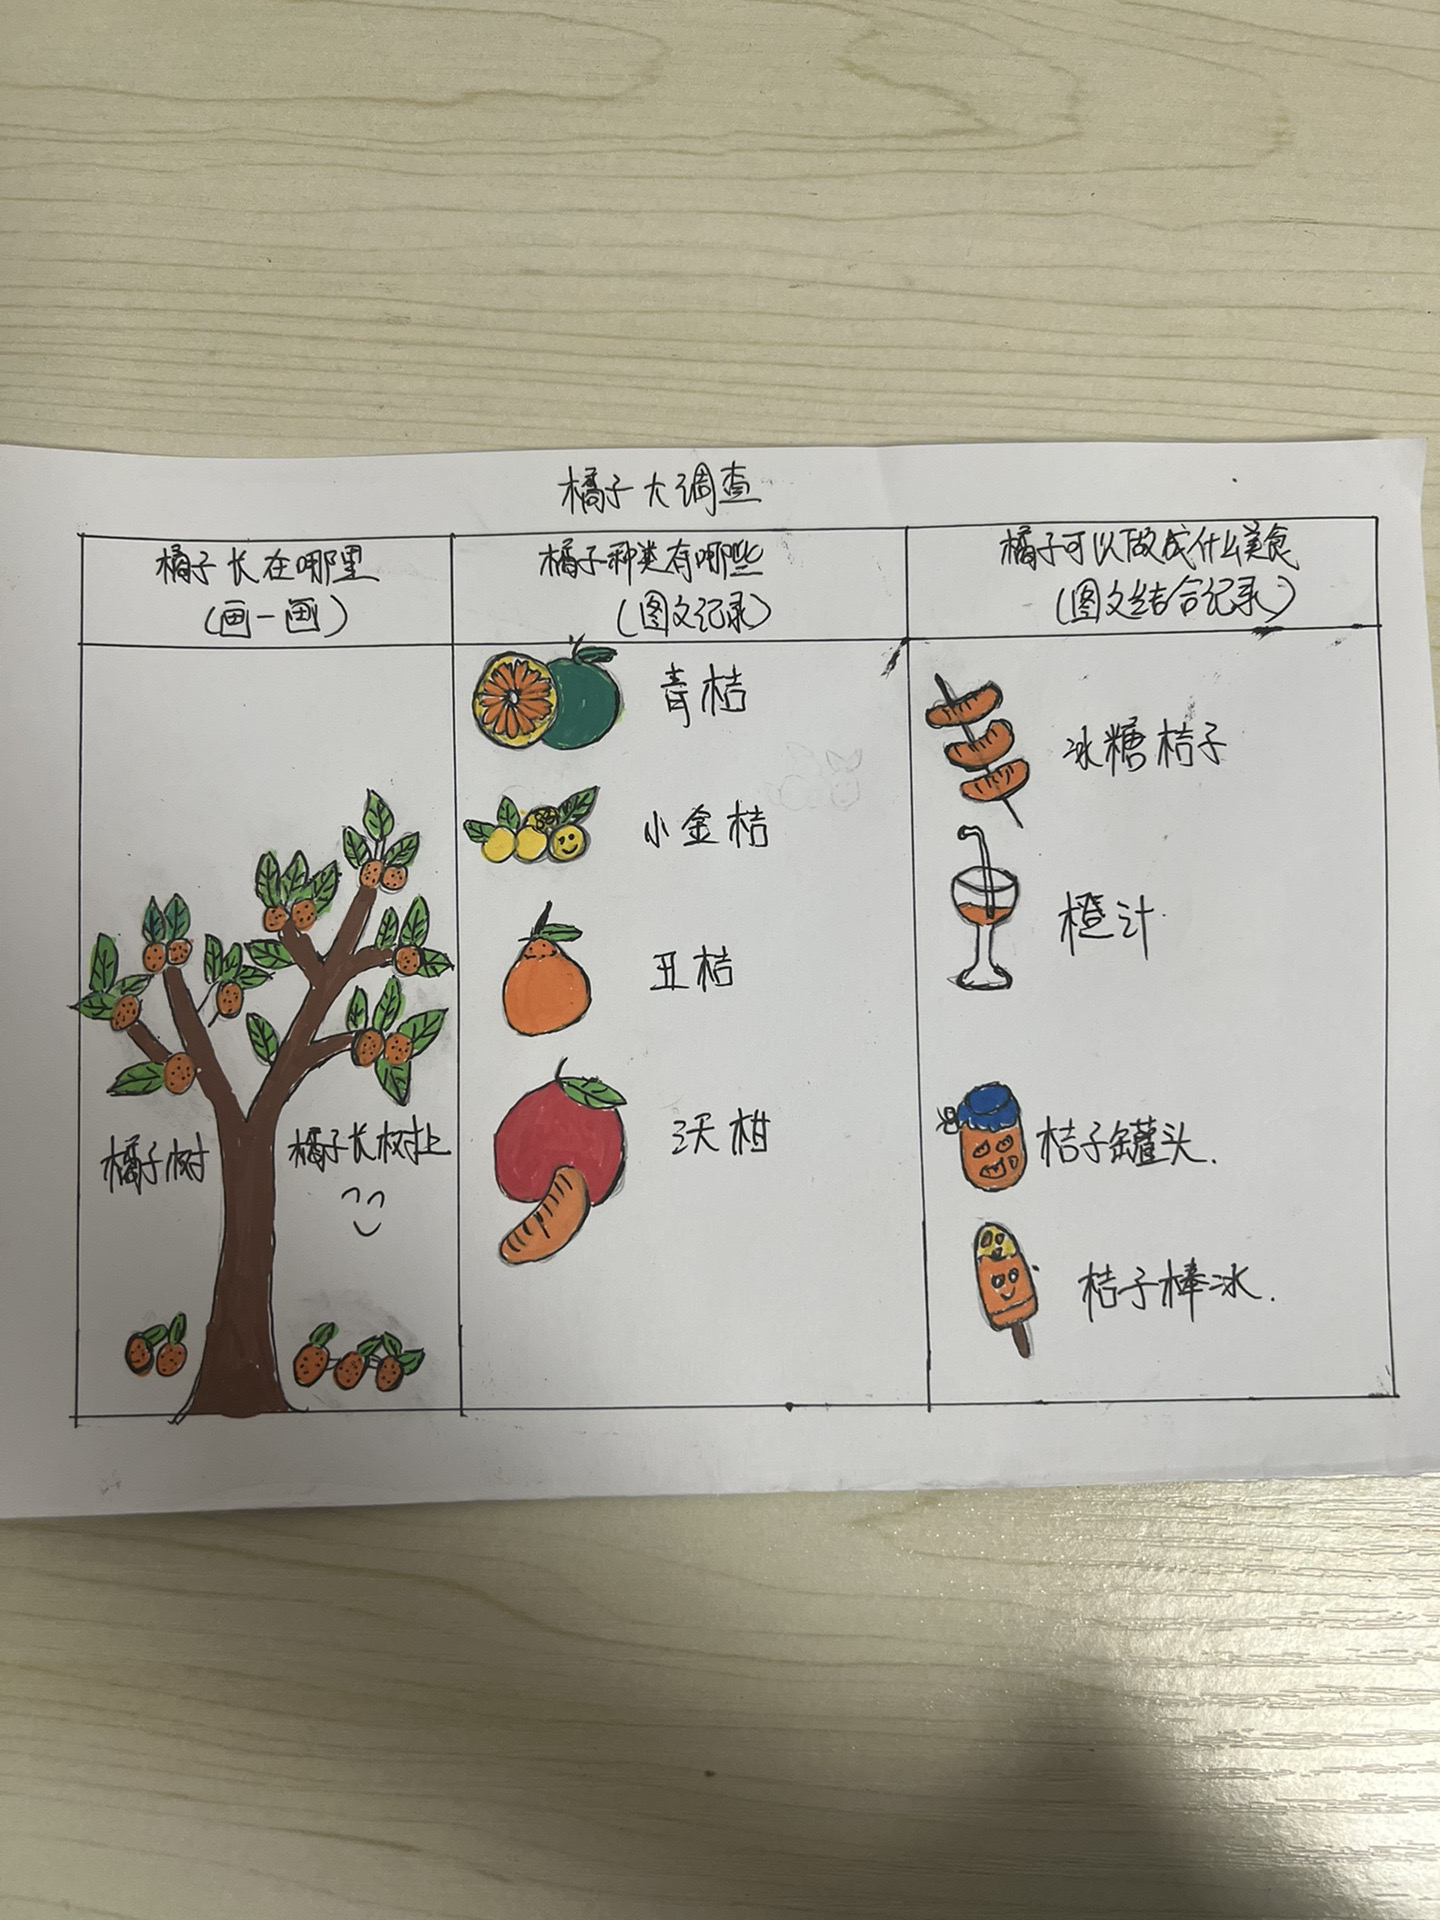 橘子大调查
橘子长在哪里
(画一画)
橘子种类有哪些
(图文记录)
橘子可以做成什么美食
(图文结合记录)
橘子树
橘子长树上
青桔
小金桔
丑桔
沃柑
冰糖桔子
橙汁
桔子罐头.
桔子棒冰.